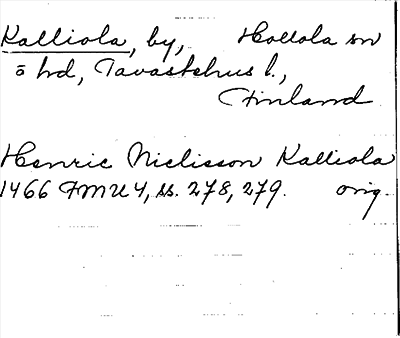 Kalliola, by, Hollola sn
o hd, Tavastehus l.,
Finland
Henric Nielisson Kalliola
1466 FMU 4, ss. 278, 279. orig.